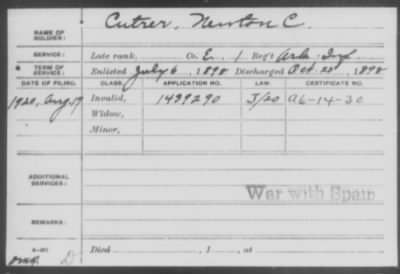 Cutrer, Newton C.
NAME OF
SOLDIER:
SERVICE: Late rank, Co. E, 1 Reg't Ark. Inf.
TERM OF
SERVICE: Enlisted July 6, 1898 Discharged Oct. 25, 1898
DATE OF FILING. CLASS. APPLICATION NO. LAW. CERTIFICATE NO.
1920, Aug 19 Invalid, 1439290 J/20 A6-14-30
Widow,
Minor,
ADDITIONAL
SERVICES:
War with Spain
REMARKS:
Died , 1 , at
D